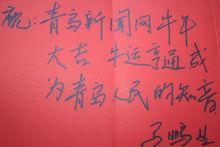 祝：青岛新闻网牛年
大吉 牛运亨通 成
为青岛人民的知音